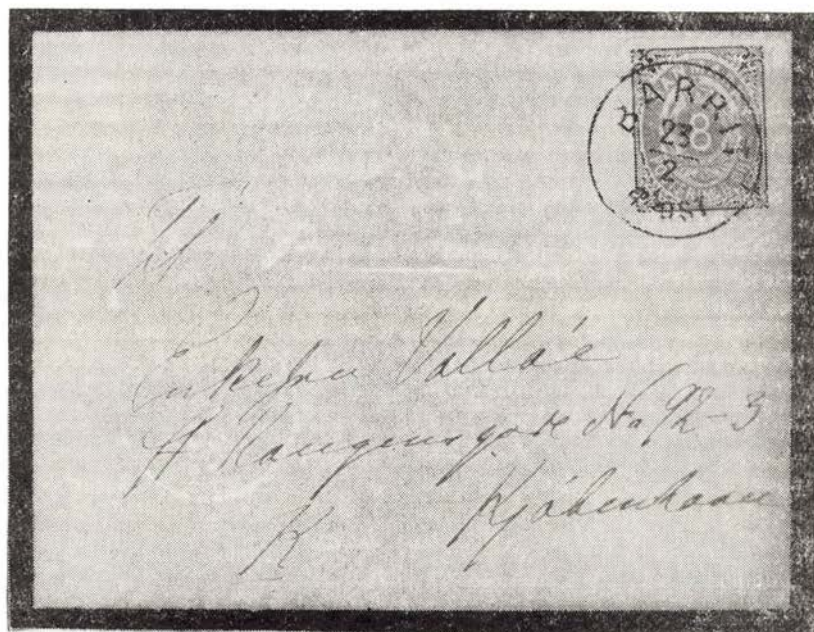 BARRIT
23
2
POST
8
Til
Enkefru Valløe
Kongensgade No 92-3
K Kjøbenhavn